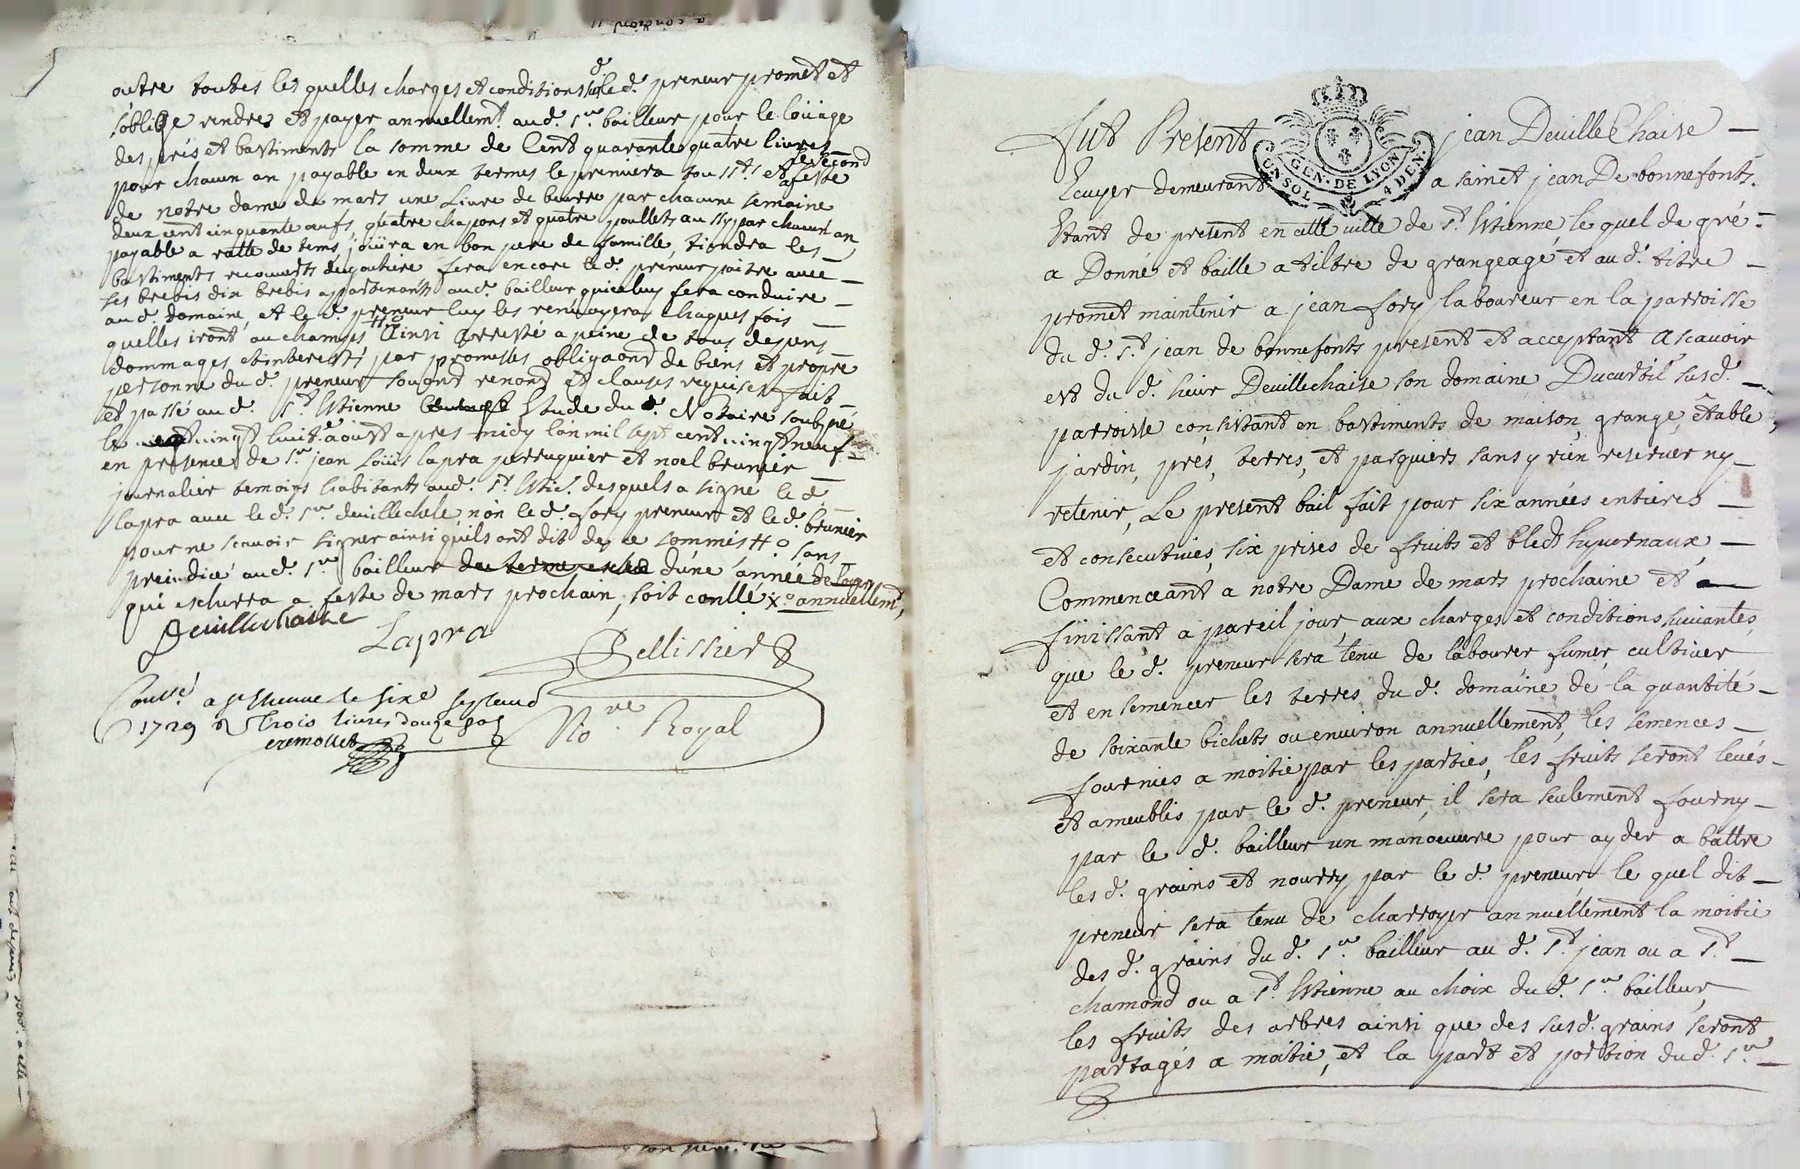 outre toutes les quelles charges et conditions led. preneur promet et
s'oblige rendre et payer annuellemt. aud. sr. bailleur pour le loüage
des prés et bastiments la somme de Cent quarante quatre livres
pour chacun an payable en deux termes le premier a toussts. et le second
a feste
de notre dame de mars une Livre de beurre par chacune semaine
deux cent cinquante œufs, quatre chapons et quatre poullets aussy par chacun an
payable a ratte de tems, joüira en bon pere de famille, tiendra les
bastiments recouverts de goutiere fera encore led. preneur paitre avec
ses brebis dix brebis appartenants aud. bailleur qui fera conduire
aud. domaine, et le d. preneur luy les renvoyera chaques fois
quelles iront au champs ainsi arresté a peine de tous despens
dommages et interests par promesses obligaons de biens et propre
personne du d. preneur renond et clauses requises fait
et passé au d. St. Estienne Etude du d. Notaire soubsné
le vingt huit aoust apres midy l'an mil sept cent vingt neuf
en presence de sr. jean Loüis lapra perruquier et noel brunier
journalier temoins habitants aud. St. Esti. desquels a signé le d.
lapra avec le d. sr. devillechese, non le d. fory preneur et le d. brunier
pour ne scavoir signer ainsi quils ont dit de ce sommés # sans
prejudice aud. sr. bailleur d'une année de
qui escherra a feste de mars prochain, soit conllé x annuellemt,
Devillechaise
Lapra
Pellissier
Nore. Royal
Conllé a st Etienne le sixe septemd
1729 R Trois livres douze sols
cremollet
fut Present jean DevilleChaise —
GEN. DE LYON
UN SOL 4 DEN.
Ecuyer demeurant a sainct jean De bonnefonts.
Etant de present en cette ville de St. Estienne le quel de gré -
a Donné et baille a tiltre de grangeagé et au d. titre —
promet maintenir a jean fory laboureur en la parroisse
du d. St. jean de bonnefonts present et acceptant Ascavoir
est du d. sieur Devillechaise son domaine Ducurtil susd. —
parroisse consistant en bastiments de maison, grange, étable,
jardin, pres, terres, et pasquiers sans y rien reserver ny —
retenir, Le present bail fait pour six années entieres —
et consecutives, six prises de fruits et bleds hyvernaux, —
Commencant a notre Dame de mars prochaine et a —
finissant a pareil jour, aux charges et conditions suivantes,
que le d. preneur sera tenu de labourer fumer, cultiver
et ensemencer les terres du d. domaine de la quantité —
de soixante bichets ou environ annuellement, les semences —
fournies a moitie par les parties, les fruits seront levés —
et ameublis par le d. preneur, il sera seulement fourny —
par le d. bailleur un manœuvre pour ayder a battre
les d. grains et nourry par le d. preneur le quel dit —
preneur sera tenu de charroyer annuellement la moitie
des d. grains du d. sr. bailleur au d. St. jean ou a St. —
chamond ou a St. Estienne au choix du d. sr. bailleur,
les fruits des arbres ainsi que des susd. grains seront
partagés a moitié, et la part et portion du d. sr. —